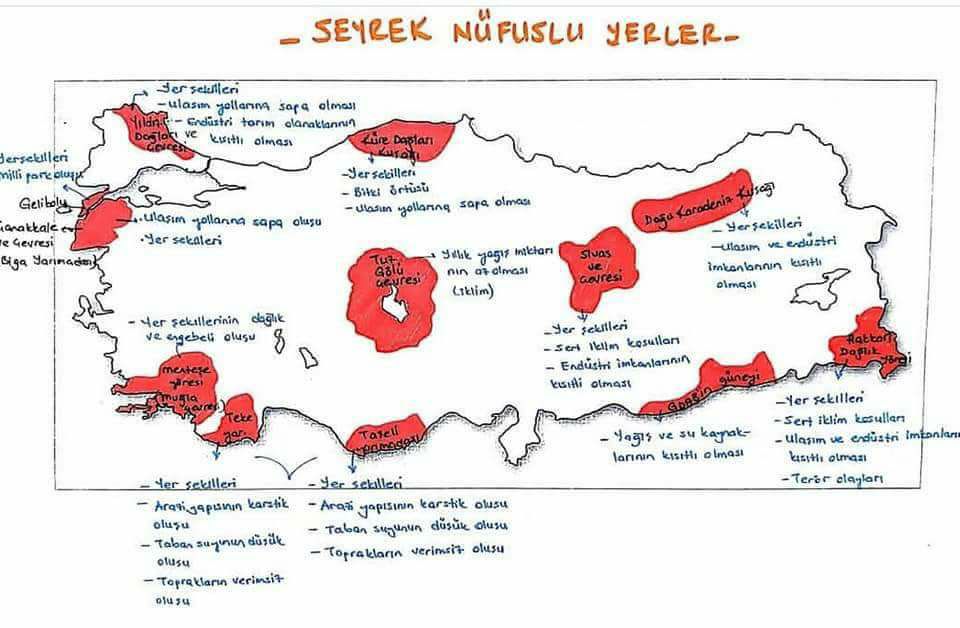 - SEYREK NÜFUSLU YERLER -
- Yer şekilleri
- Ulaşım yollarına sapa olması
- Endüstri tarım olanaklarının
ve kısıtlı olması
Yıldız
Dağları
Çevresi
Küre Dağları
Kuşağı
- Yer şekilleri
- Bitki örtüsü
- Ulaşım yollarına sapa olması
Yerşekilleri
milli park oluşu
Gelibolu
Çanakkale
ve Çevresi
Biga Yarımadası
- Ulaşım yollarına sapa oluşu
- Yer şekilleri
Doğu Karadeniz Kuşağı
- Yer şekilleri
- Ulaşım ve endüstri
imkanlarının kısıtlı
olması
Tuz
Gölü
Çevresi
- Yıllık yağış miktarı
nın az olması
(iklim)
Sivas
ve
Çevresi
- Yer şekilleri
- Sert iklim koşulları
- Endüstri imkanlarının
kısıtlı olması
- Yer şekillerinin dağlık
ve engebeli oluşu
menteşe
yöresi
muğla
çevresi
Teke
yar.
Taşeli
yarımadası
G.Doğu'nun güneyi
- Yağış ve su kaynak-
larının kısıtlı olması
Hakkari
Dağlık
yöresi
- Yer şekilleri
- Sert iklim koşulları
- Ulaşım ve endüstri imkanların
kısıtlı olması
- Terör olayları
- Yer şekilleri
- Arazi yapısının karstik
oluşu
- Taban suyunun düşük
oluşu
- Toprakların verimsiz
oluşu
- Yer şekilleri
- Arazi yapısının karstik oluşu
- Taban suyunun düşük oluşu
- Toprakların verimsiz oluşu